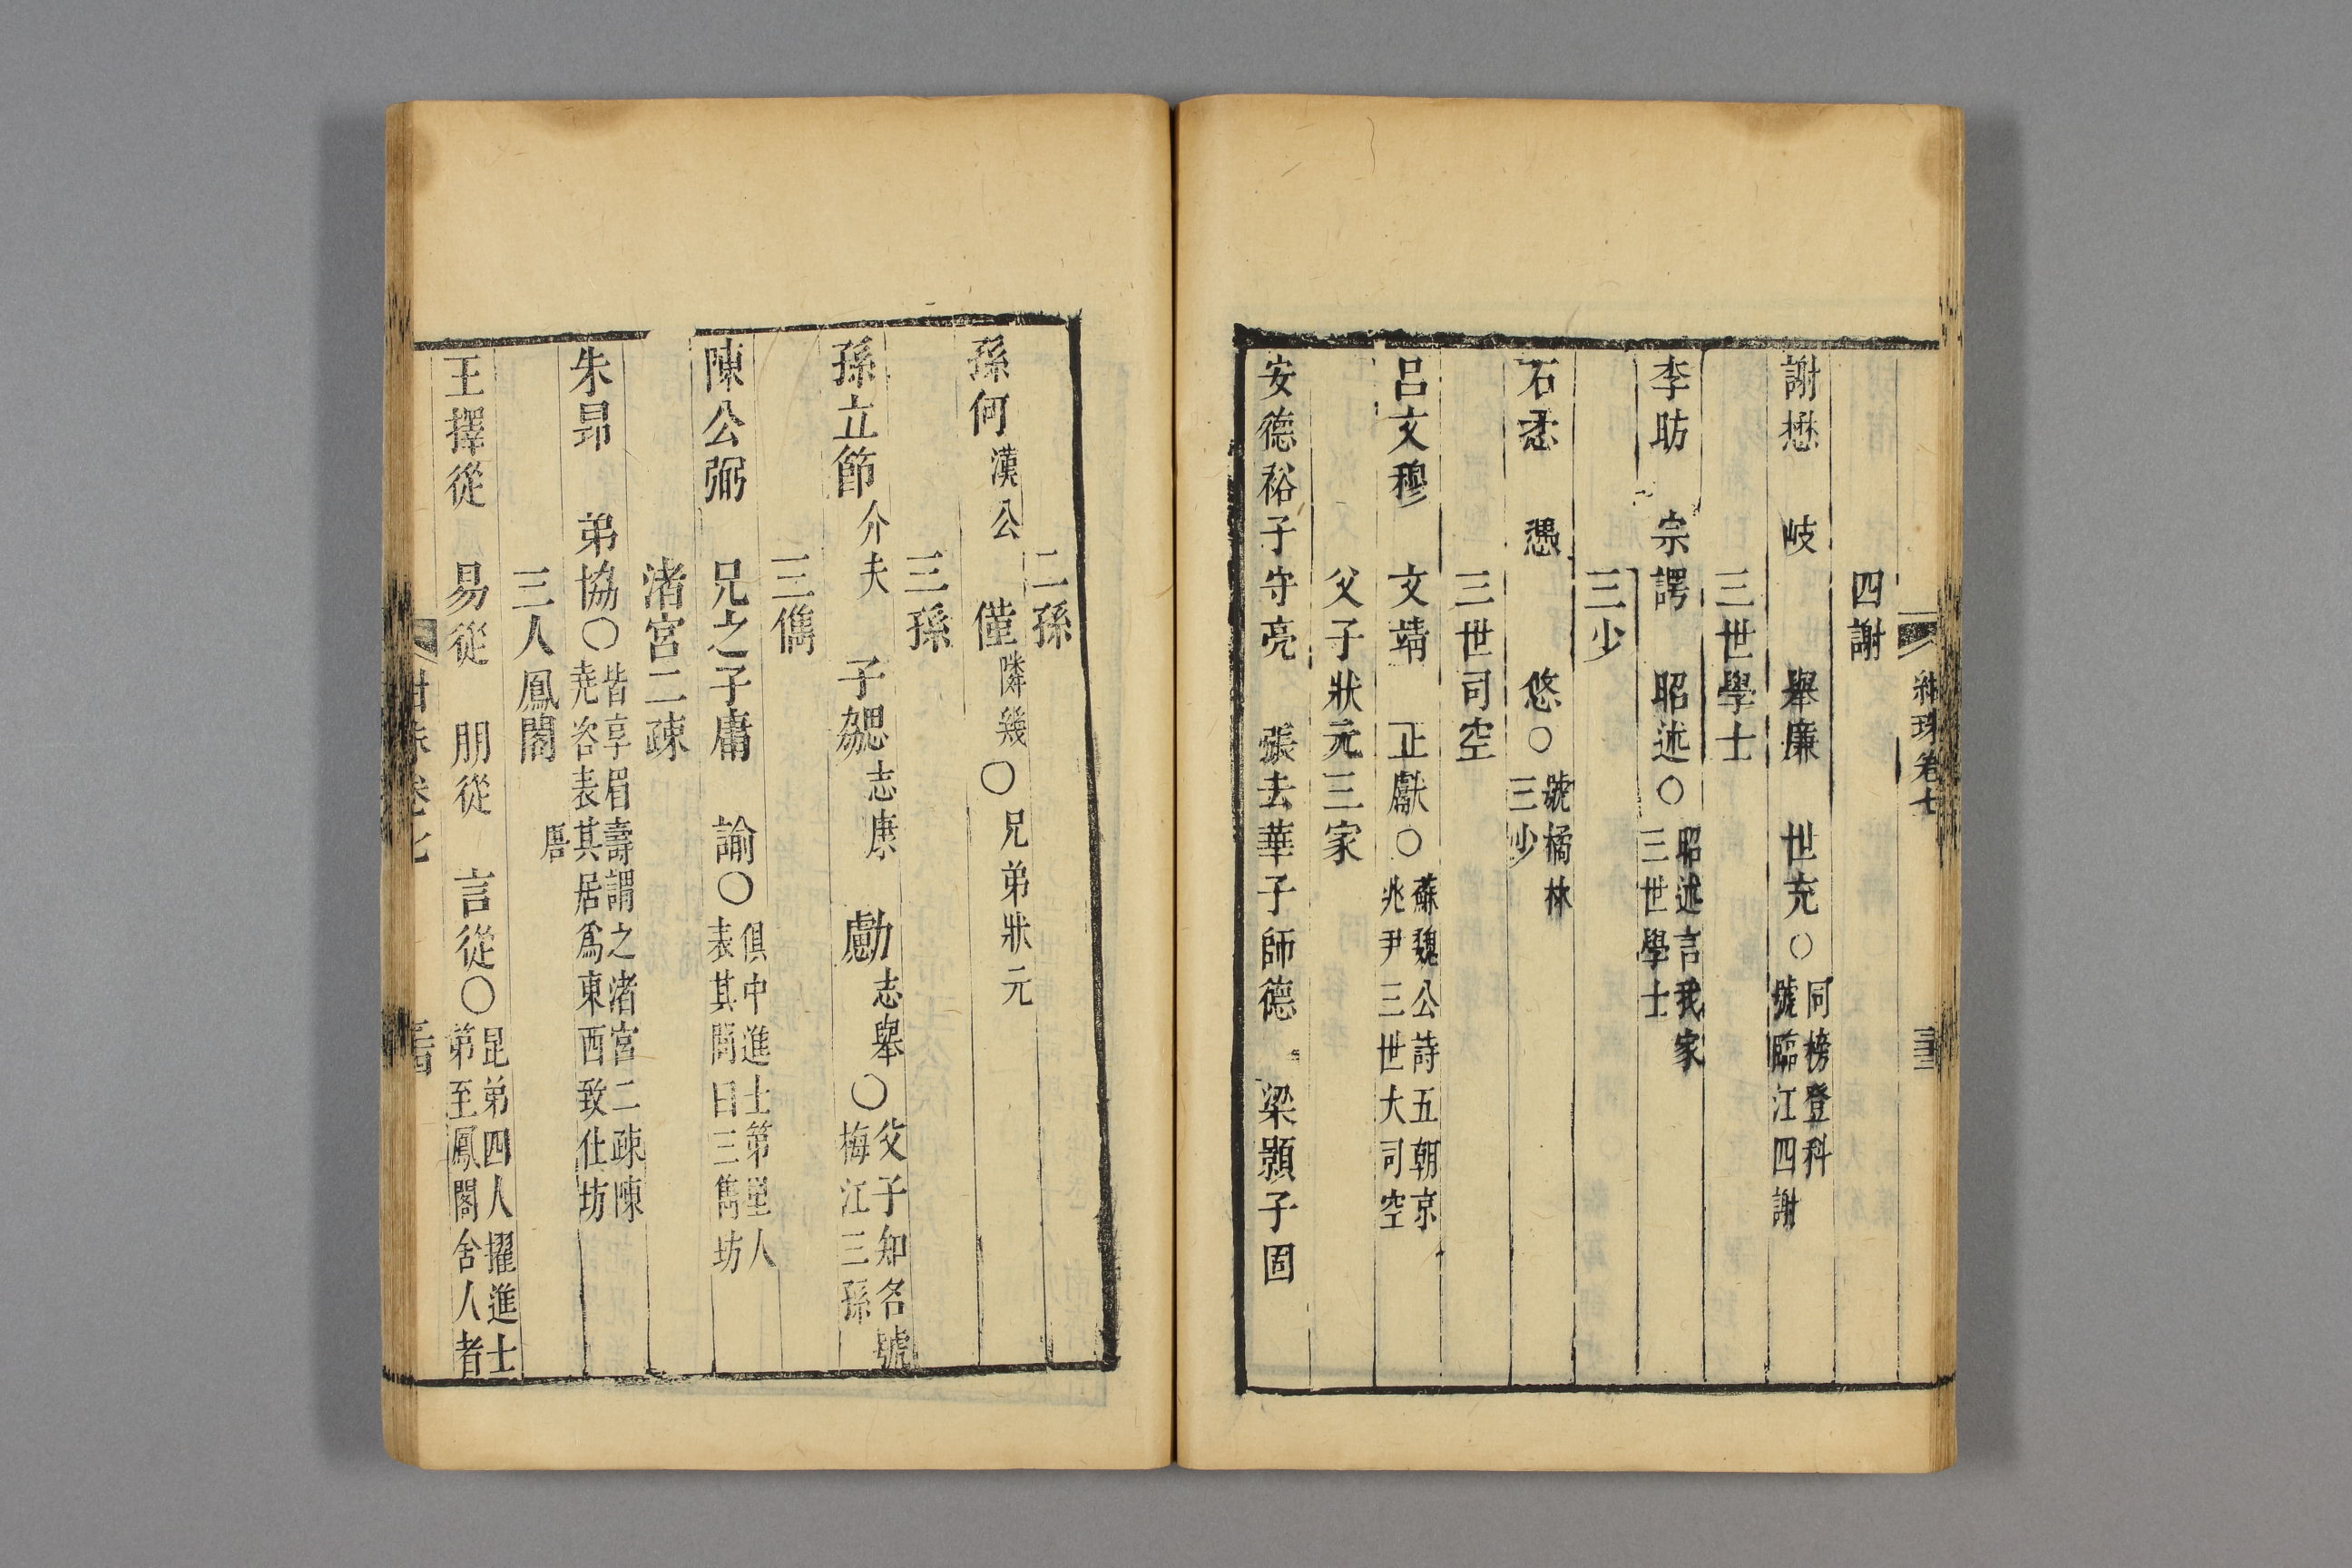 紺珠卷七
四謝
謝懋 岐 舉廉 世充○同榜登科號臨江四謝
三世學士
李昉 宗諤 昭述○昭述言我家三世學士
三少
石悆 愚 悠○號橘林三少
三世司空
呂文穆 文靖 正獻○蘇魏公詩五朝京兆尹三世大司空
父子狀元三家
安德裕子守亮 張去華子師德 梁顥子固
二孫
孫何漢公 僅隣幾○兄弟狀元
三孫
孫立節介夫 子勰志康 勴志舉○父子知名號梅江三孫
三儁
陳公弼 兄之子庸 諭○俱中進士第里人表其閭曰三雋坊
渚宮二疎
朱昂 弟協○皆享眉壽謂之渚宮二疎陳堯咨表其居爲東西致仕坊
三人鳳閣 唐
王擇從 易從 朋從 言從○昆弟四人擢進士第至鳳閣舍人者